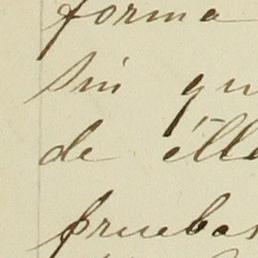 forma
sin qu
de élla
pruebas